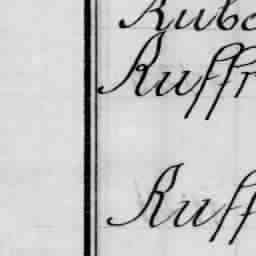 Rube
Ruffr
Ruff